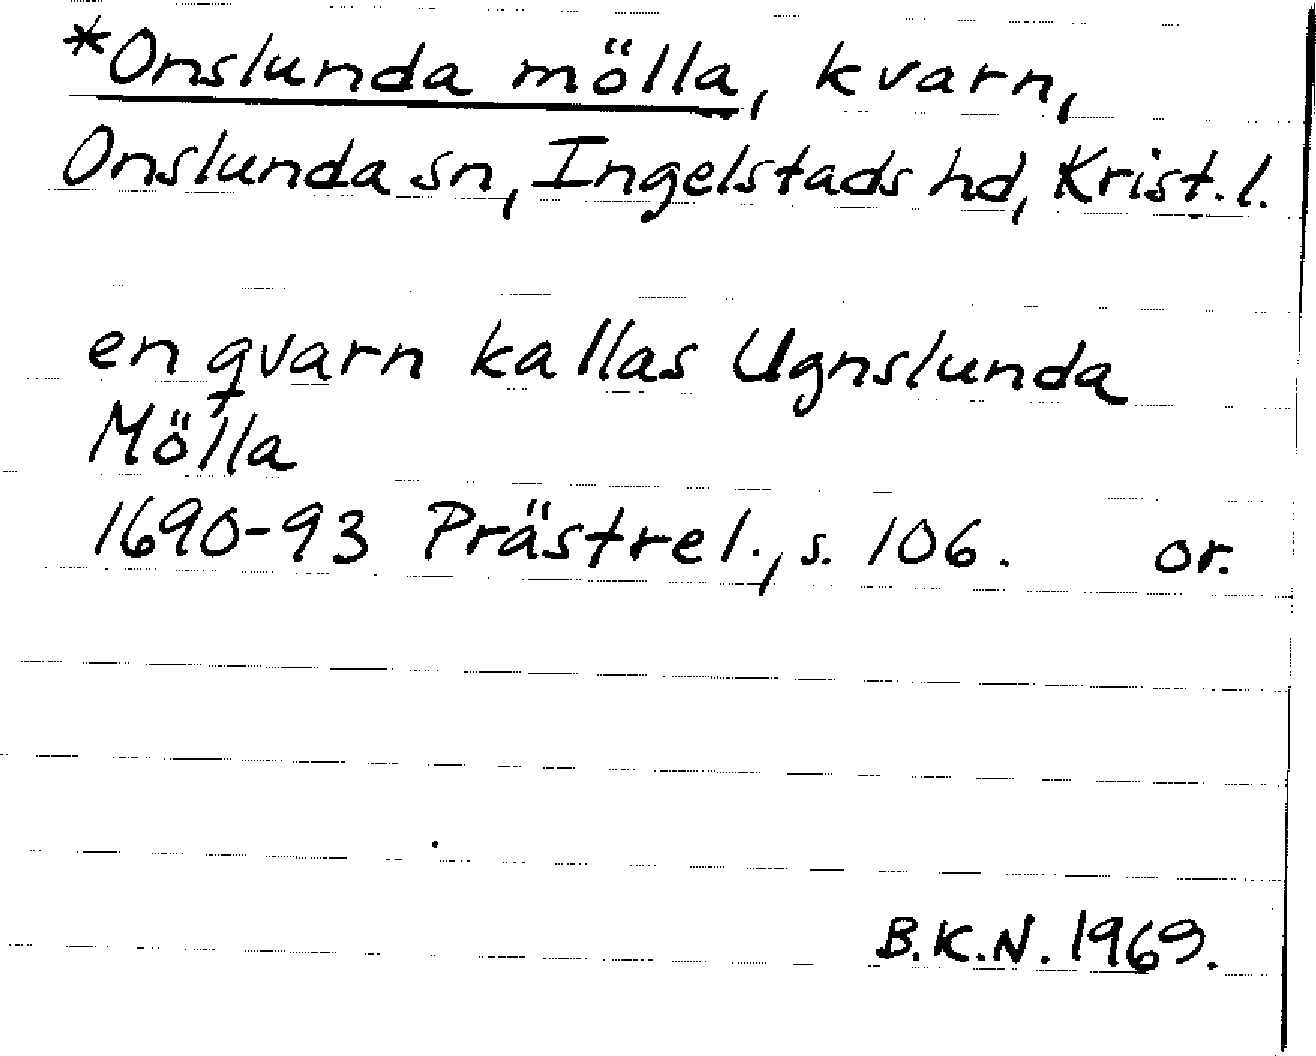 *Onslunda mölla, kvarn,
Onslunda sn, Ingelstads hd, Krist. l.
en qvarn kallas Ugnslunda
Mölla
1690-93 Prästrel., s. 106. or.
B.K.N. 1969.